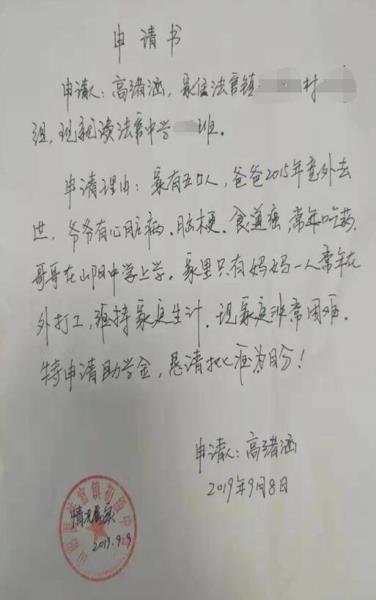 申请书
申请人：高绪涵，家住法官镇 村
组，现就读法官中学 班。
申请理由：家有五口人，爸爸2015年意外去
世，爷爷有心脏病、脑梗、食道癌，常年吃药，
哥哥在山阳中学上学。家里只有妈妈一人常年在
外打工，维持家庭生计，现家庭非常困难，
特申请助学金，恳请批准为盼！
申请人：高绪涵
2019年9月8日
情况属实
2019.9.9